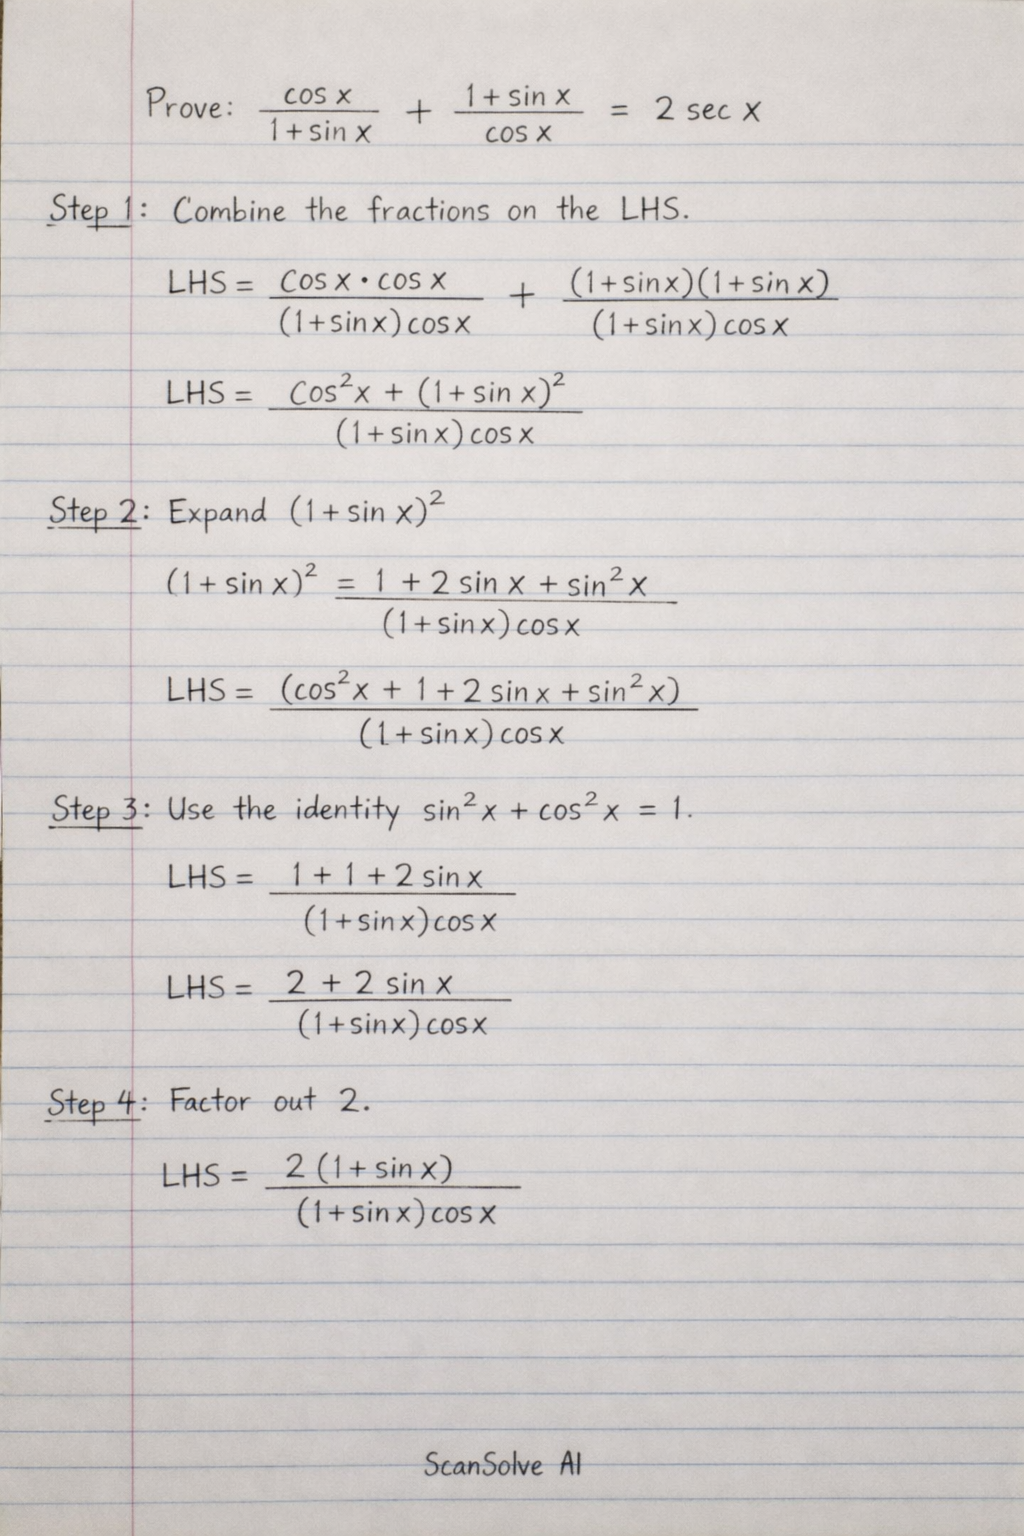 Prove: cos x / 1 + sin x + 1 + sin x / cos x = 2 sec x
Step 1: Combine the fractions on the LHS.
LHS = cos x · cos x / (1 + sin x) cos x + (1 + sin x)(1 + sin x) / (1 + sin x) cos x
LHS = cos²x + (1 + sin x)² / (1 + sin x) cos x
Step 2: Expand (1 + sin x)²
(1 + sin x)² = 1 + 2 sin x + sin² x / (1 + sin x) cos x
LHS = (cos²x + 1 + 2 sin x + sin² x) / (1 + sin x) cos x
Step 3: Use the identity sin² x + cos² x = 1.
LHS = 1 + 1 + 2 sin x / (1 + sin x) cos x
LHS = 2 + 2 sin x / (1 + sin x) cos x
Step 4: Factor out 2.
LHS = 2 (1 + sin x) / (1 + sin x) cos x
ScanSolve AI